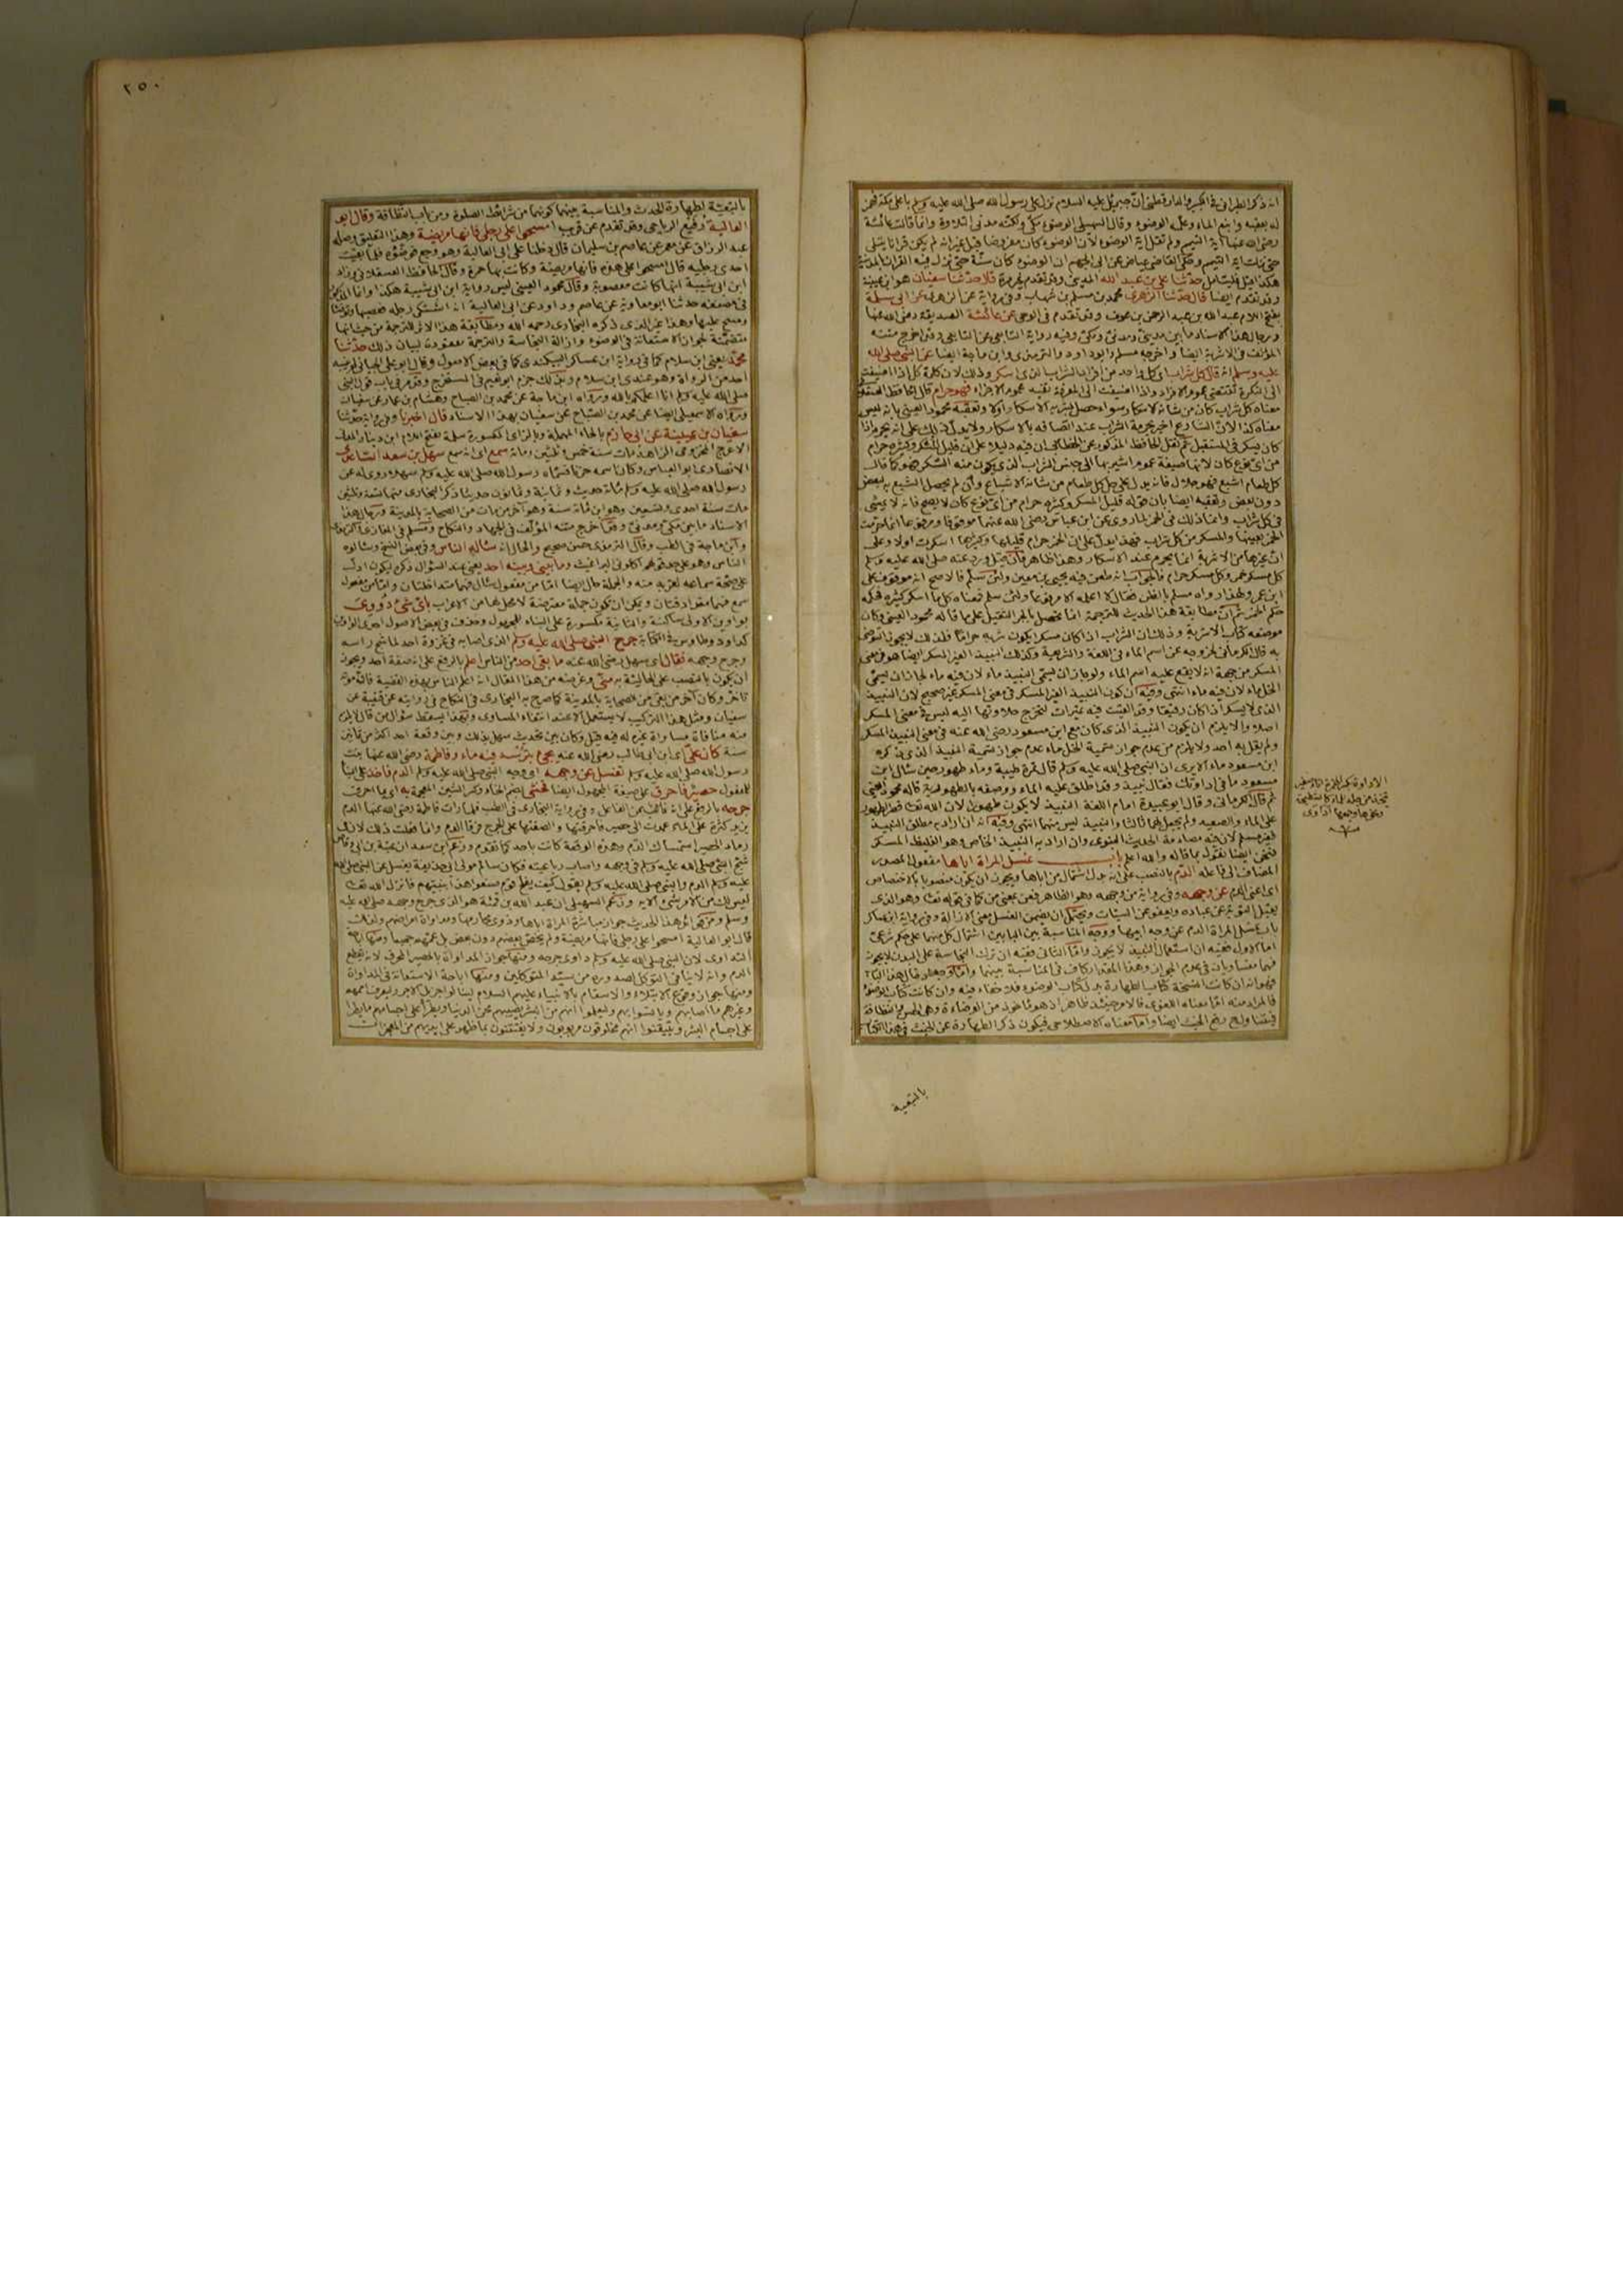 انه ذكر الطبراني في الكبير والدارقطني ان جبريل عليه السلام نزل على رسول الله صلى الله عليه وسلم باعلى مكة
له بعقبه وانبع الماء وعلمه الوضوء وقال السهيلي الوضوء مكي ولكنه مدني التلاوة وانما قالت عائشة
رضي الله عنها آية التيمم ولم تقل آية الوضوء لان الوضوء كان مفروضا قبل غير انه لم يكن قرانا يتلى
حتى نزلت اية التيمم وحكى القاضي عياض عن ابي الجهم ان الوضوء كان سنة حتى نزل فيه القران بالمدينة
حدثنا علي بن عبد الله المديني وقد تقدم غير مرة قال حدثنا سفيان هو ابن عيينة
وقد تقدم ايضا قال حدثنا الزهري محمد بن مسلم بن شهاب وفي رواية عن الزهري عن ابي سلمة
بفتح اللام عبد الله بن عبد الرحمن بن عوف وقد تقدم في الوحي عن عائشة الصديقة رضي الله عنها
ورجال هذا الاسناد ما بين مديني ومدني ومكي وفيه رواية التابعي عن التابعي وقد اخرج متنه
المؤلف في الاشربة ايضا واخرجه مسلم وابو داود والترمذي وابن ماجة ايضا عن النبي صلى الله
عليه وسلم انه قال كل شراب اي كل واحد من افراد الشراب الذي اسكر وذلك لان كلمة كل اذا اضيفت
الى النكرة تقتضي عموم الافراد واذا اضيفت الى المعرفة تفيد عموم الاجزاء فهو حرام قال الحافظ العسقلاني
معناه كل شراب كان من شانه الاسكار سواء حصل بشربه الاسكار ام لا وتعقبه محمود العيني بانه ليس
معناه كذا لان الشارع اخبر بحرمة الشراب عند اتصافه بالاسكار ولا يدل ذلك على انه يحرم اذا
كان يسكر في المستقبل ثم نقل الحافظ المذكور عن الخطابي ان فيه دليلا على ان قليل المسكر وكثيره حرام
من اي نوع كان لانها صيغة عموم اشير بها الى جنس الشراب الذي يكون منه السكر فهو كما قال
كل طعام اشبع فهو حلال فانه يدل على حل كل طعام من شانه الاشباع وان لم يحصل الشبع به لبعض
دون بعض وتعقبه ايضا بان قوله قليل المسكر وكثيره حرام من اي نوع كان لا يصح فانه لا يمشي
في كل شراب وانما ذلك في الخمر لما روي عن ابن عباس رضي الله عنهما موقوفا ومرفوعا انما حرمت
الخمر بعينها والمسكر من كل شراب فهذا يدل على ان الخمر حرام قليلها وكثيرها اسكرت اولا وعلى
ان غيرها من الاشربة انما يحرم عند الاسكار وهذا ظاهر فان قيل ورد عنه صلى الله عليه وسلم
كل مسكر خمر وكل مسكر حرام فالجواب انه طعن فيه يحيى بن معين ولئن سلم فالاصح انه موقوف على
ابن عمر ولهذا رواه مسلم بالظن فقال لا اعلمه الا مرفوعا ولئن سلم فمعناه كل ما اسكر كثيره فحكمه
حكم الخمر ثم ان مطابقة هذا الحديث للترجمة انما تحصل بالجر الثقيل على ما قاله محمود العيني وكان
موضعه كتاب الاشربة وذلك ان الشراب اذا كان مسكرا يكون شربه حراما فلذلك لا يجوز التوضئ
به قال الكرماني لخروجه عن اسم الماء في اللغة والشريعة وكذلك النبيذ الغير المسكر ايضا هو في معنى
المسكر من جهة انه لا يقع عليه اسم الماء ولو جاز ان يسمى النبيذ ماء لان فيه ماء لجاز ان يسمى
الخل ماء لان فيه ماء انتهى وفيه ان كون النبيذ الغير المسكر في معنى المسكر غير صحيح لان النبيذ
الذي لا يسكر اذا كان رقيقا وقد القيت فيه تميرات لتخرج حلاوتها اليه ليس في معنى المسكر
اصلا ولا يلزم ان يكون النبيذ الذي كان مع ابن مسعود رضي الله عنه في معنى النبيذ المسكر
ولم يقل به احد ولا يلزم من عدم جواز تسمية الخل ماء عدم جواز تسمية النبيذ الذي ذكره
ابن مسعود ماء الا يرى ان النبي صلى الله عليه وسلم قال تمرة طيبة وماء طهور حين سال ابن
مسعود ما في اداوتك فقال نبيذ وقد اطلق عليه الماء ووصفه بالطهورية قاله محمود العيني
ثم قال الكرماني وقال ابو عبيدة امام اللغة النبيذ لا يكون طهورا لان الله تعالى شرط الطهور
على الماء والصعيد ولم يجعل لهما ثالثا والنبيذ ليس منهما انتهى وفيه انه ان اراد به مطلق النبيذ
فغير مسلم لان فيه مصادمة الحديث النبوي وان اراد به النبيذ الخاص وهو الغليظ المسكر
فنحن ايضا نقول بما قاله والله اعلم باب غسل المراة اباها مفعول لمصدر
المضاف الى فاعله الدم بالنصب على انه بدل اشتمال من اباها ويجوز ان يكون منصوبا بالاختصاص
اي اعني الدم عن وجهه وفي رواية من وجهه وهو الظاهر فعن بمعنى من كما في قوله تعالى وهو الذي
يقبل التوبة عن عباده ويعفو عن السيئات ويحتمل ان يضمن الغسل معنى الازالة وفي رواية ابن عساكر
باب غسل المراة الدم عن وجه ابيها ووجه المناسبة بين البابين اشتمال كل منهما على حكم شرعي
اما الاول ففيه ان استعمال النبيذ لا يجوز واما الثاني ففيه ان ترك النجاسة على البدن لا يجوز
فهما متساويان في عدم الجواز وهذا المقدار كاف في المناسبة بينهما
فهو انه ان كانت النسخة كتاب الطهارة بدل كتاب الوضوء فلا خفاء فيه وان كانت كتاب الوضوء
فالمراد منه اما معناه اللغوي فالامر حينئذ ظاهر اذ هو ماخوذ من الوضاءة وهي الحسن والنظافة
فيتناول رفع الخبث ايضا واما معناه الاصطلاحي فيكون ذكر الطهارة عن الخبث في هذا الكتاب
بالتبعية
٢٥٠
بالتبعية لطهارة الحدث والمناسبة بينهما كونهما من شرائط الصلوة ومن باب النظافة وقال ابو
العالية رفيع الرياحي وقد تقدم عن قريب امسحوا على رجلي فانها مريضة وهذا التعليق وصله
عبد الرزاق عن معمر عن عاصم بن سليمان قال دخلنا على ابي العالية وهو وجع فوضؤه فلما بقيت
احدى رجليه قال امسحوا على هذه فانها مريضة وكانت بها حمرة وقال الحافظ العسقلاني وزاد
ابن ابي شيبة انها كانت معصوبة وقال محمود العيني ليس رواية ابن ابي شيبة هكذا وانما
في مصنفه حدثنا ابو معاوية عن عاصم وداود عن ابي العالية انه اشتكى رجله فعصبها وتوضأ
ومسح عليها وهذا غير الذي ذكره البخاري رحمه الله ومطابقة هذا الاثر للترجمة من حيث انها
متضمنة لجواز الاستعانة في الوضوء وازالة النجاسة والترجمة معقودة لبيان ذلك حدثنا
محمد يعني ابن سلام كما في رواية ابن عساكر البيكندي كما في بعض الاصول وقال ابو علي الجياني لم ينسبه
احد من الرواة وهو عندي ابن سلام وبذلك جزم ابو نعيم في المستخرج وقد مر في باب قول النبي
صلى الله عليه وسلم انا اعلمكم بالله ورواه ابن ماجة عن محمد بن الصباح وهشام بن عمار عن سفيان
ورواه الاسمعيلي ايضا عن محمد بن الصباح عن سفيان بهذا الاسناد قال اخبرنا وفي رواية حدثنا
سفيان بن عيينة عن ابي حازم بالحاء المهملة وبالزاي المكسورة سلمة بفتح اللام ابن دينار
الاعرج المخزومي الزاهد مات سنة خمس وثلثين ومائة سمع اي انه سمع سهل بن سعد الساعدي
الانصاري ابو العباس وكان اسمه حزنا فسماه رسول الله صلى الله عليه وسلم سهلا روي له عن
رسول الله صلى الله عليه وسلم مائة حديث وثمانية وثمانون حديثا ذكر البخاري منها تسعة وثلثين
مات سنة احدى وتسعين وهو ابن مائة سنة وهو آخر من مات من الصحابة بالمدينة ورجال هذا
الاسناد ما بين مكي ومدني وقد اخرج متنه المؤلف في الجهاد والنكاح ومسلم في المغازي
وابن ماجة في الطب وقال الترمذي حسن صحيح والحال انه ساله الناس وفي بعض النسخ وسالوه
الناس وهو على لغة اكلوني البراغيث وما بيني وبينه احد يعني عند السؤال ذكره ليكون ادل
على صحة سماعه لقربه منه والجملة حال ايضا اما من مفعول سال فهما متداخلتان واما من مفعول
سمع فهما مترادفتان ويمكن ان تكون جملة معترضة لا محل لها من الاعراب باي شيء دووي
بواوين الاولى ساكنة والثانية مكسورة على البناء للمجهول وحذف في بعض الاصول احدى الواوين
كداود وطاوس في الكتابة جرح النبي صلى الله عليه وسلم الذي اصابه في غزوة احد لما شج راسه
وجرح وجهه فقال اي سهل رضي الله عنه ما بقي احد من الناس اعلم بالرفع على انه صفة احد ويجوز
ان يكون بالنصب على الحالية به مني وغرضه من هذا المقال انه اعلم الناس بهذه القضية فانه موته
تاخر وكان آخر من بقي من الصحابة بالمدينة كما صرح به البخاري في النكاح في روايته عن قتيبة عن
سفيان ومثل هذا التركيب لا يستعمل الا عند انتفاء المساوي وبهذا يسقط سؤال من قال لا يلزم
منه منافاة مساواة غيره له فيه قيل وكان بين تحديث سهل بذلك وبين وقعة احد اكثر من ثمانين
سنة كان علي اي ابن ابي طالب رضي الله عنه يجيء بترسه فيه ماء وفاطمة رضي الله عنها بنت
رسول الله صلى الله عليه وسلم تغسل عن وجهه اي وجه النبي صلى الله عليه وسلم الدم فاخذ على البناء
للمفعول حصير فاحرق على صيغة المجهول ايضا فحشي بضم الحاء وكسر الشين المعجمة به اي بما احرق
جرحه بالرفع على انه قائم عن الفاعل وفي رواية البخاري في الطب فلما رات فاطمة رضي الله عنها الدم
يزيد كثرة على الماء عمدت الى حصير فاحرقتها والصقتها على الجرح فرقأ الدم وانما فعلت ذلك لان في
رماد الحصير استمساك الدم وهذه الوقعة كانت باحد كما تقدم وزعم ابن سعد ان عتبة بن ابي وقاص
شج النبي صلى الله عليه وسلم في وجهه واصاب رباعيته فكان سالم مولى ابي حذيفة يغسل عن النبي صلى الله
عليه وسلم الدم والنبي صلى الله عليه وسلم يقول كيف يفلح قوم صنعوا هذا بنبيهم فانزل الله تعالى
ليس لك من الامر شيء الآية وزعم السهيلي ان عبد الله بن قمئة هو الذي جرح وجهه صلى الله عليه
وسلم ومن فوائد هذا الحديث جواز مباشرة المراة اباها وذوي محارمها ومداواة امراضهم ولذلك
قال ابو العالية امسحوا على رجلي فانها مريضة ولم يخص بعضهم دون بعض بل عمهم جميعا ومنها اباحة
التداوي لان النبي صلى الله عليه وسلم داوى جرحه ومنها جواز المداواة بالحصير المحرق لانه يقطع
الدم وانه لا ينافي التوكل لصدوره من سيد المتوكلين ومنها اباحة الاستعانة في المداواة
ومنها جواز وقوع الابتلاء والاسقام بالانبياء عليهم السلام لينالوا جزيل الاجر وليعرف اممهم
وغيرهم ما اصابهم ويأتسوا بهم وليعلموا انهم من البشر يصيبهم محن الدنيا ويطرأ على اجسامهم ما يطرأ
على اجسام البشر ويتيقنوا انهم مخلوقون مربوبون ولا يفتتنون بما ظهر على ايديهم من المعجزات